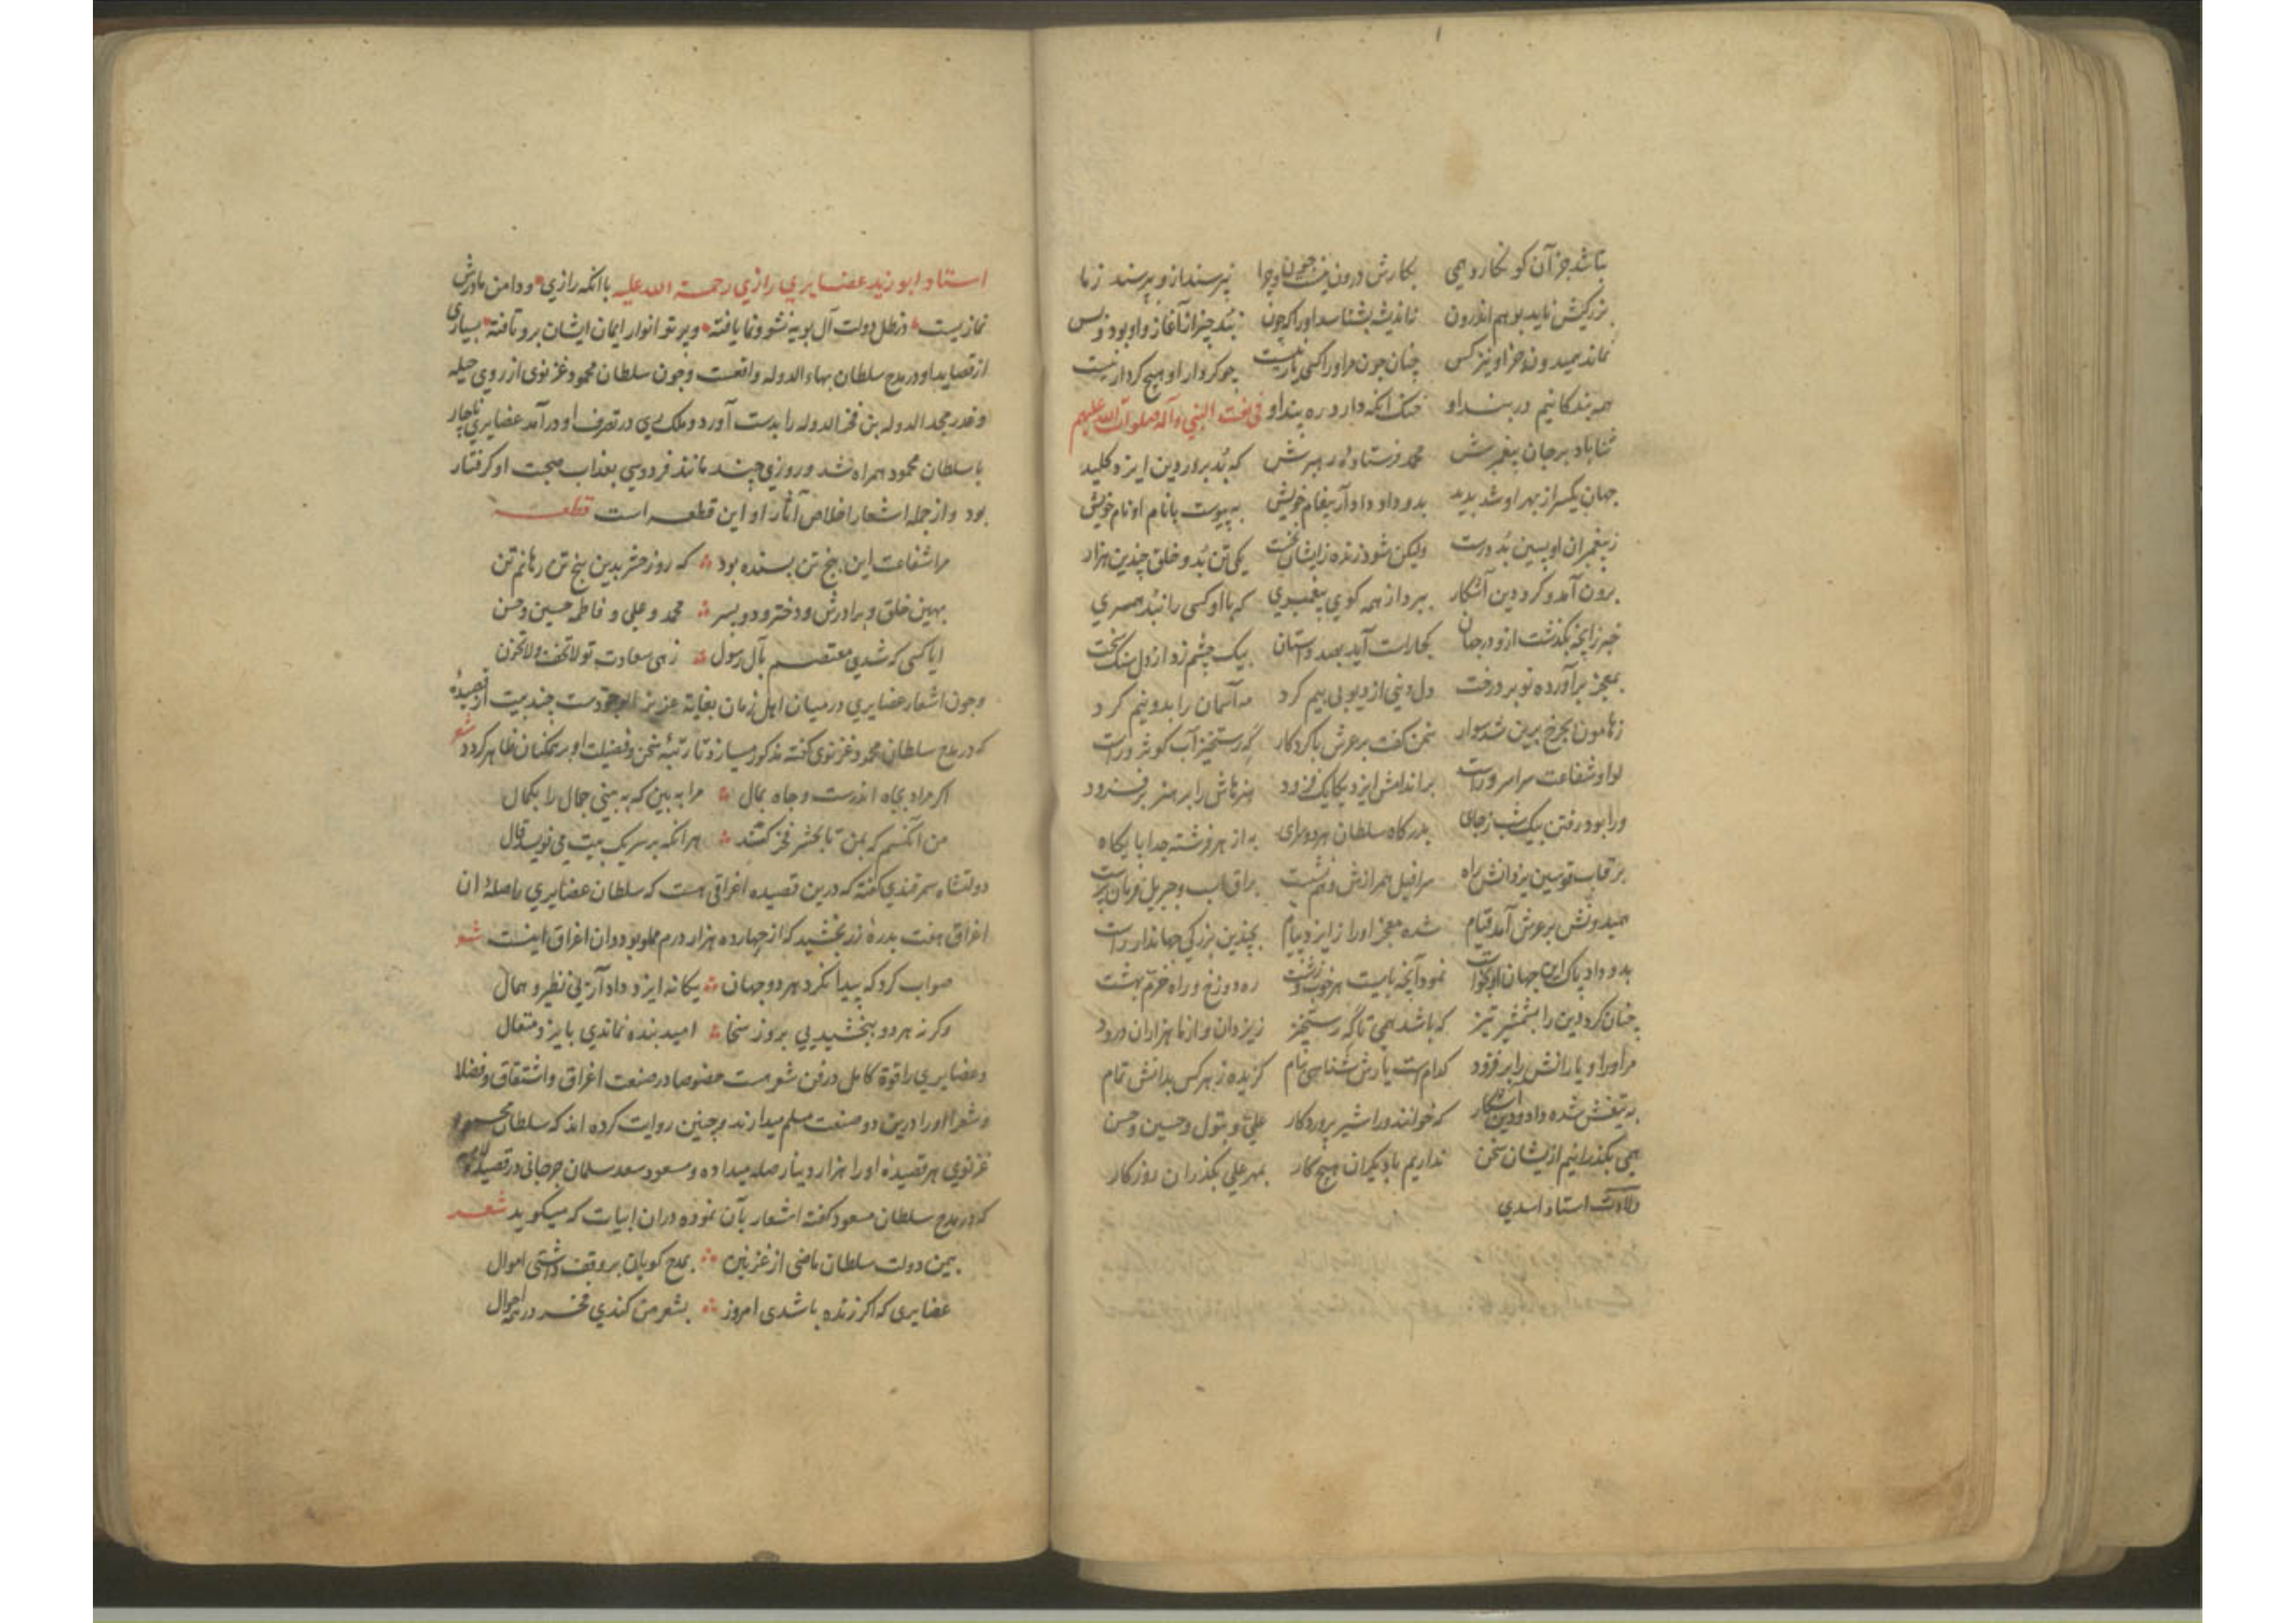 نباشد جز آن کو نکارد همی نکارش درون نیست چون و چرا نپرسند ازو و بپرسند زما
بزرکیش ناید بوهم اندرون نه اندیشه بشناسد او را که چون نبد چیز از آغاز و او بود و بس
نماند همیدون جز او نیز کس چنان چون مر او را کسی یار نیست چو کردار او هیچ کردار نیست
همه بندکانیم در بند او خنک آنکه دارد ره پند او فی نعت النبی و آله صلوات الله علیهم
ثنا باد بر جان پیغمبرش محمد فرستاده و رهبرش که بُد بر در دین ایزد کلید
جهان یکسر از بهر او شد پدید بدو داد دادار پیغام خویش به پیوست با نام او نام خویش
ز پیغمبران او پسین بُد درست ولیکن شود زنده زایشان نخست یکی تن بُد و خلق چندین هزار
برون آمد و کرد دین آشکار ببرد از همه کوی پیغمبری که با او کسی را نبُد همسری
خبر زانچه بگذشت از و در جهان بجا راست آید بصد داستان بیک چشم زد از دل سنک سخت
بمعجز برآورده نو بر درخت دل دشمن از دیو بی بیم کرد مه آسمان را بدو نیم کرد
ز هامون بچرخ برین شد سوار سخن گفت بر عرش با کردکار گه رستخیز آب کوثر وراست
لوا و شفاعت سراسر وراست بر اندامش ایزد یکایک فزود هنرهاش را بر هنر بر فزود
ورا بود رفتن بیک شب ز جای بدرکاه سلطان هر دو سرای به از هر فرشته جدا پایکاه
بر قاب قوسین یزدانش راه سرافیل همرازش و هم نشست براق اسب و جبریل فرمان پرست
همیدونش بر عرش آمد قیام شده معجز او را ز ایزد پیام بچندین بزرکی جهاندار راست
بدو داد پاک این جهان او کواست نمود آنچه بایست هر خوب و زشت ره دوزخ و راه خرم بهشت
چنان کرد دین را بشمشیر تیز که باشد همی تا گه رستخیز ز یزدان و از ما هزاران درود
مر او را و یارانش را بر فزود کدام است یارش شناسی نام کزیده ز هر کس بدانش تمام
به تیغش شده داد و دین آشکار که خوانند ورا شیر پروردکار علی و بتول و حسین و حسن
همی بگذرانیم ازیشان سخن نداریم با دیکران هیچ کار بمهر علی بگذران روزکار
ولادت استاد اسدی
استاد ابوزید عضایری رازی رحمة الله علیه با آنکه رازی و دامن مادرش
نمازیست در ظل دولت آل بویه نشو و نما یافته و پرتو انوار ایمان ایشان برو تافته بسیاری
از قصاید او در مدح سلطان بهاء الدوله واقعست و چون سلطان محمود غزنوی از روی حیله
و غدر مجد الدوله بن فخر الدوله را بدست آورد و ملک ری در تصرف او در آمد عضایری ناچار
با سلطان محمود همراه شد و روزی چند مانند فردوسی بعذاب صحبت او کرفتار
بود و از جمله اشعار اخلاص آثار او این قطعه است قطعه
مرا شفاعت این پنج تن بسنده بود که روز حشر بدین پنج تن رهانم تن
بهین خلق و برادرش و دختر و دو پسر محمد و علی و فاطمه حسین و حسن
ایا کسی که شدی معتصم بآل رسول زهی سعادت تو لا تخف ولا تحزن
و چون اشعار عضایری در میان اهل زمان بغایة عزیز الوجودست چند بیت از قصیدهٔ
که در مدح سلطان محمود غزنوی کفته مذکور میسازد تا رتبهٔ سخن و فضیلت او بر همکنان ظاهر کردد شعر
اکر مراد بجاه اندرست و جاه بمال مرا به بین که به بینی جمال را بکمال
من آنکسم که بمن تا بحشر فخر کنند هر آنکه بر سر یک بیت می نویسد قال
دولتشاه سمرقندی کفته که درین قصیده اغراقی هست که سلطان عضایری را صلهٔ آن
اغراق هفت بدرهٔ زر بخشید که از چهارده هزار درم مملو بود و آن اغراق اینست شعر
صواب کرد که پیدا نکرد هر دو جهان یکانه ایزد دادار بی نظیر و همال
و کر نه هر دو ببخشیدیی بروز سخا امید بنده نماندی بایزد متعال
و عضایری را قوة کامل در فن شعر هست خصوصا در صنعت اغراق و اشتقاق و فضلا
و شعرا او را درین دو صنعت مسلم میدارند و چنین روایت کرده اند که سلطان محمود
غزنوی هر قصیده او را هزار دینار صله میداده و مسعود سعد سلمان جرجانی در قصیدهٔ
که در مدح سلطان مسعود کفته اشعار بآن نموده در آن ابیات که میکوید شعر
بیمن دولت سلطان ماضی از غزنین بمدح کویان بر وقف داشتی اموال
عضایری که اکر زنده باشدی امروز بشعر من کندی فخر در همه احوال